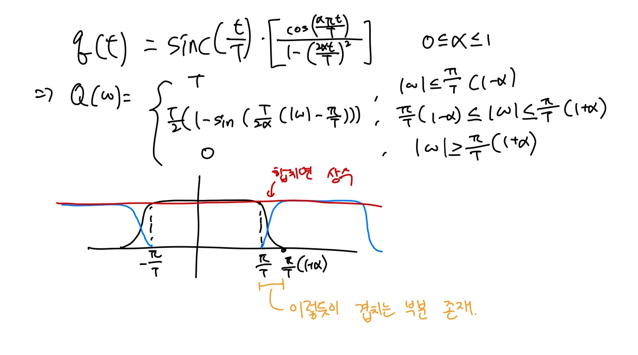 q(t) = sinc(t/T) · [cos(απt/T) / (1-(2αt/T)²)]   0≤α≤1
⇒ Q(ω) = { T , |ω| ≤ π/T (1-α)
T/2 (1-sin(T/2α (|ω| - π/T))) , π/T (1-α) ≤ |ω| ≤ π/T (1+α)
0 , |ω| ≥ π/T (1+α)
합치면 상수
-π/T   π/T   π/T (1+α)
이렇듯이 겹치는 부분 존재.